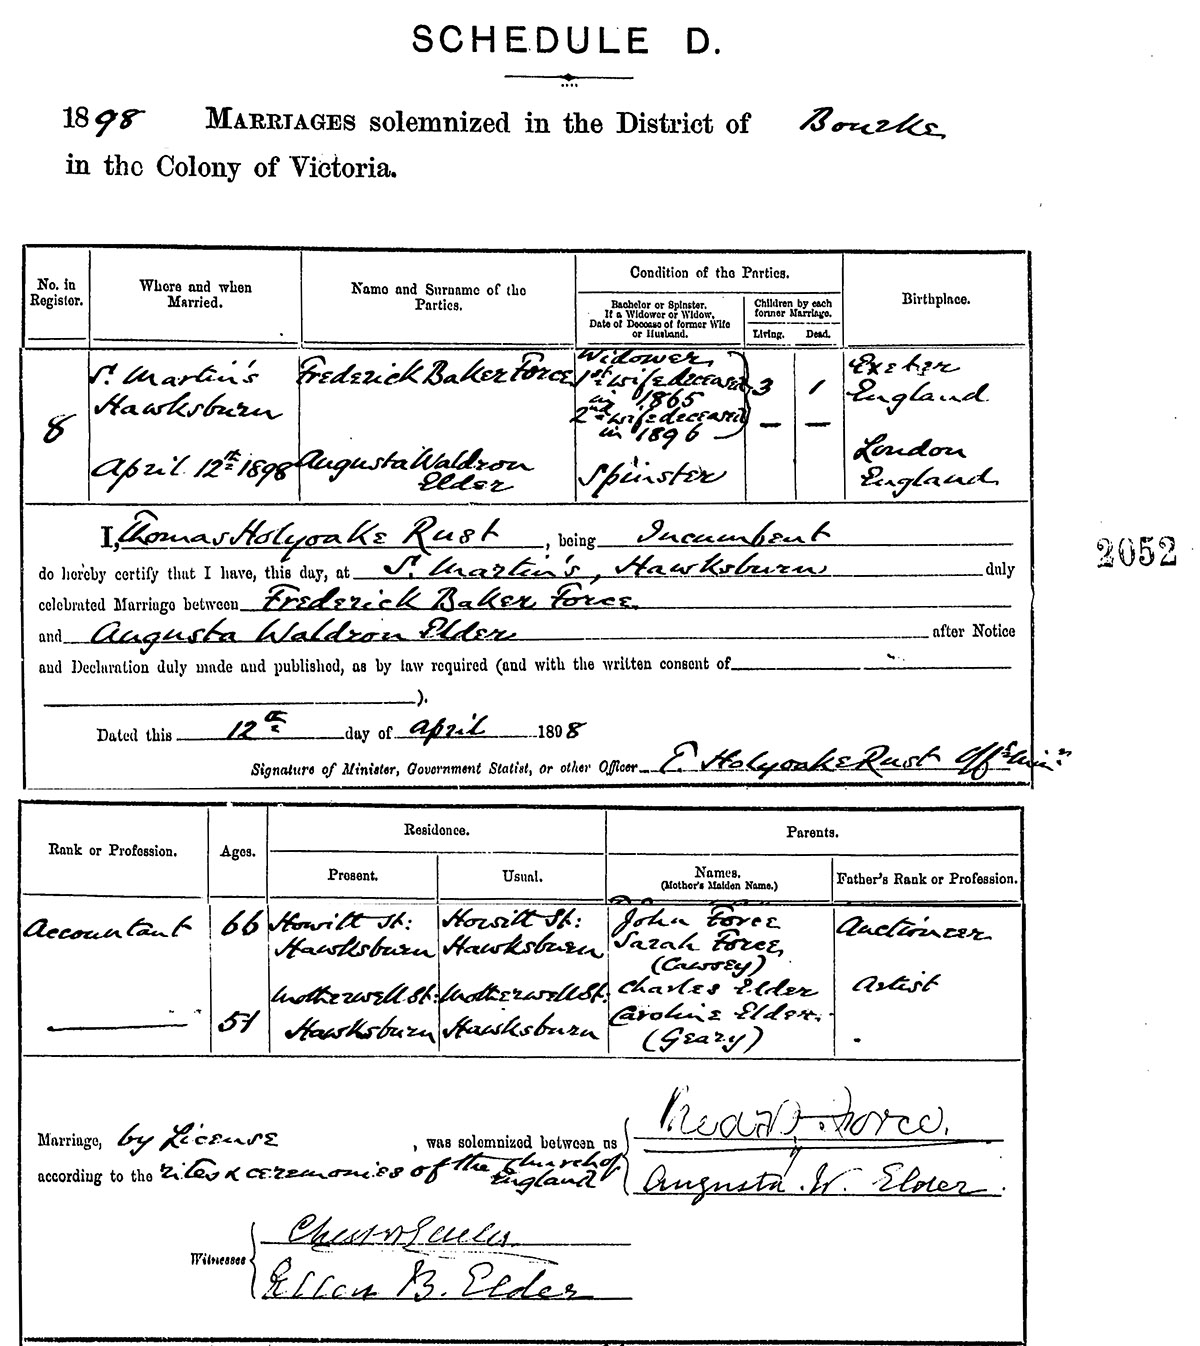 SCHEDULE D.
1898 MARRIAGES solemnized in the District of Bourke
in the Colony of Victoria.
No. in Register.
Where and when Married.
Name and Surname of the Parties.
Condition of the Parties.
Bachelor or Spinster. If a Widower or Widow, Date of Decease of former Wife or Husband.
Children by each former Marriage.
Living. Dead.
Birthplace.
8
St. Martin's
Hawksburn
April 12th 1898
Frederick Baker Force
Augusta Waldron
Elder
Widower
1st wife deceased
in 1865
2nd wife deceased
in 1896
Spinster
3 1
— —
Exeter
England
London
England
I, Thomas Holyoake Rust, being Incumbent
do hereby certify that I have, this day, at St. Martin's, Hawksburn duly
celebrated Marriage between Frederick Baker Force
and Augusta Waldron Elder after Notice
and Declaration duly made and published, as by law required (and with the written consent of
).
Dated this 12th day of April 1898
Signature of Minister, Government Statist, or other Officer T. Holyoake Rust Offg. Min.
2052
Rank or Profession.
Ages.
Residence.
Present. Usual.
Parents.
Names. (Mother's Maiden Name.)
Father's Rank or Profession.
Accountant
66
Howitt St:
Hawksburn
Howitt St:
Hawksburn
John Force
Sarah Force
(Cawsey)
Auctioneer
51
Motherwell St:
Hawksburn
Motherwell St:
Hawksburn
Charles Elder
Caroline Elder
(Geary)
Artist
Marriage, by License, was solemnized between us
according to the rites & ceremonies of the Church of England
Force.
Augusta W. Elder.
Witnesses
Ellen B. Elder